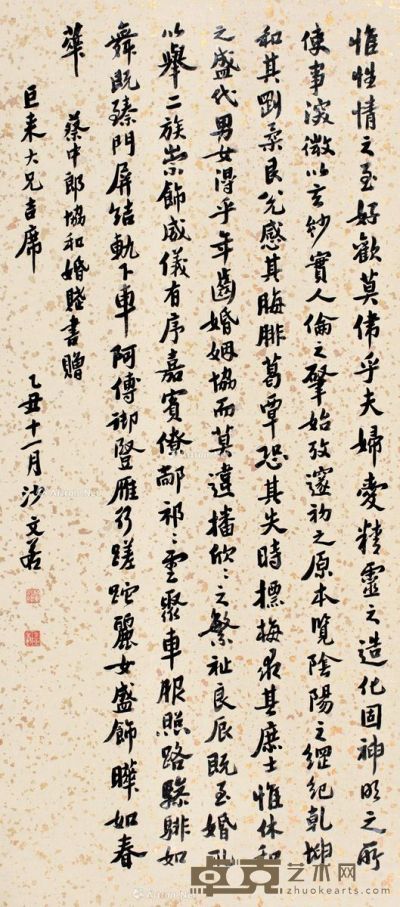 惟性情之至好歡莫偉乎夫婦愛精靈之造化固神明之所
使事深微以玄妙實人倫之肇始攷邃初之原本覽陰陽之綱紀乾坤
和其剛柔艮兌感其脢腓葛覃恐其失時摽梅求其庶士惟休和
之盛代男女得乎年齒婚姻協而莫違播欣〻之繁祉良辰既至婚礼
以舉二族崇飾威儀有序嘉賓僚鄰祁〻雲聚車服照路驂騑如
舞既臻門屏結軌下車阿傅御豎雁行蹉跎麗女盛飾曄如春
華 蔡中郎協和婚賦書贈
巨來大兄吉席
乙丑十一月沙文若
卓克艺术网
zhuokearts.com